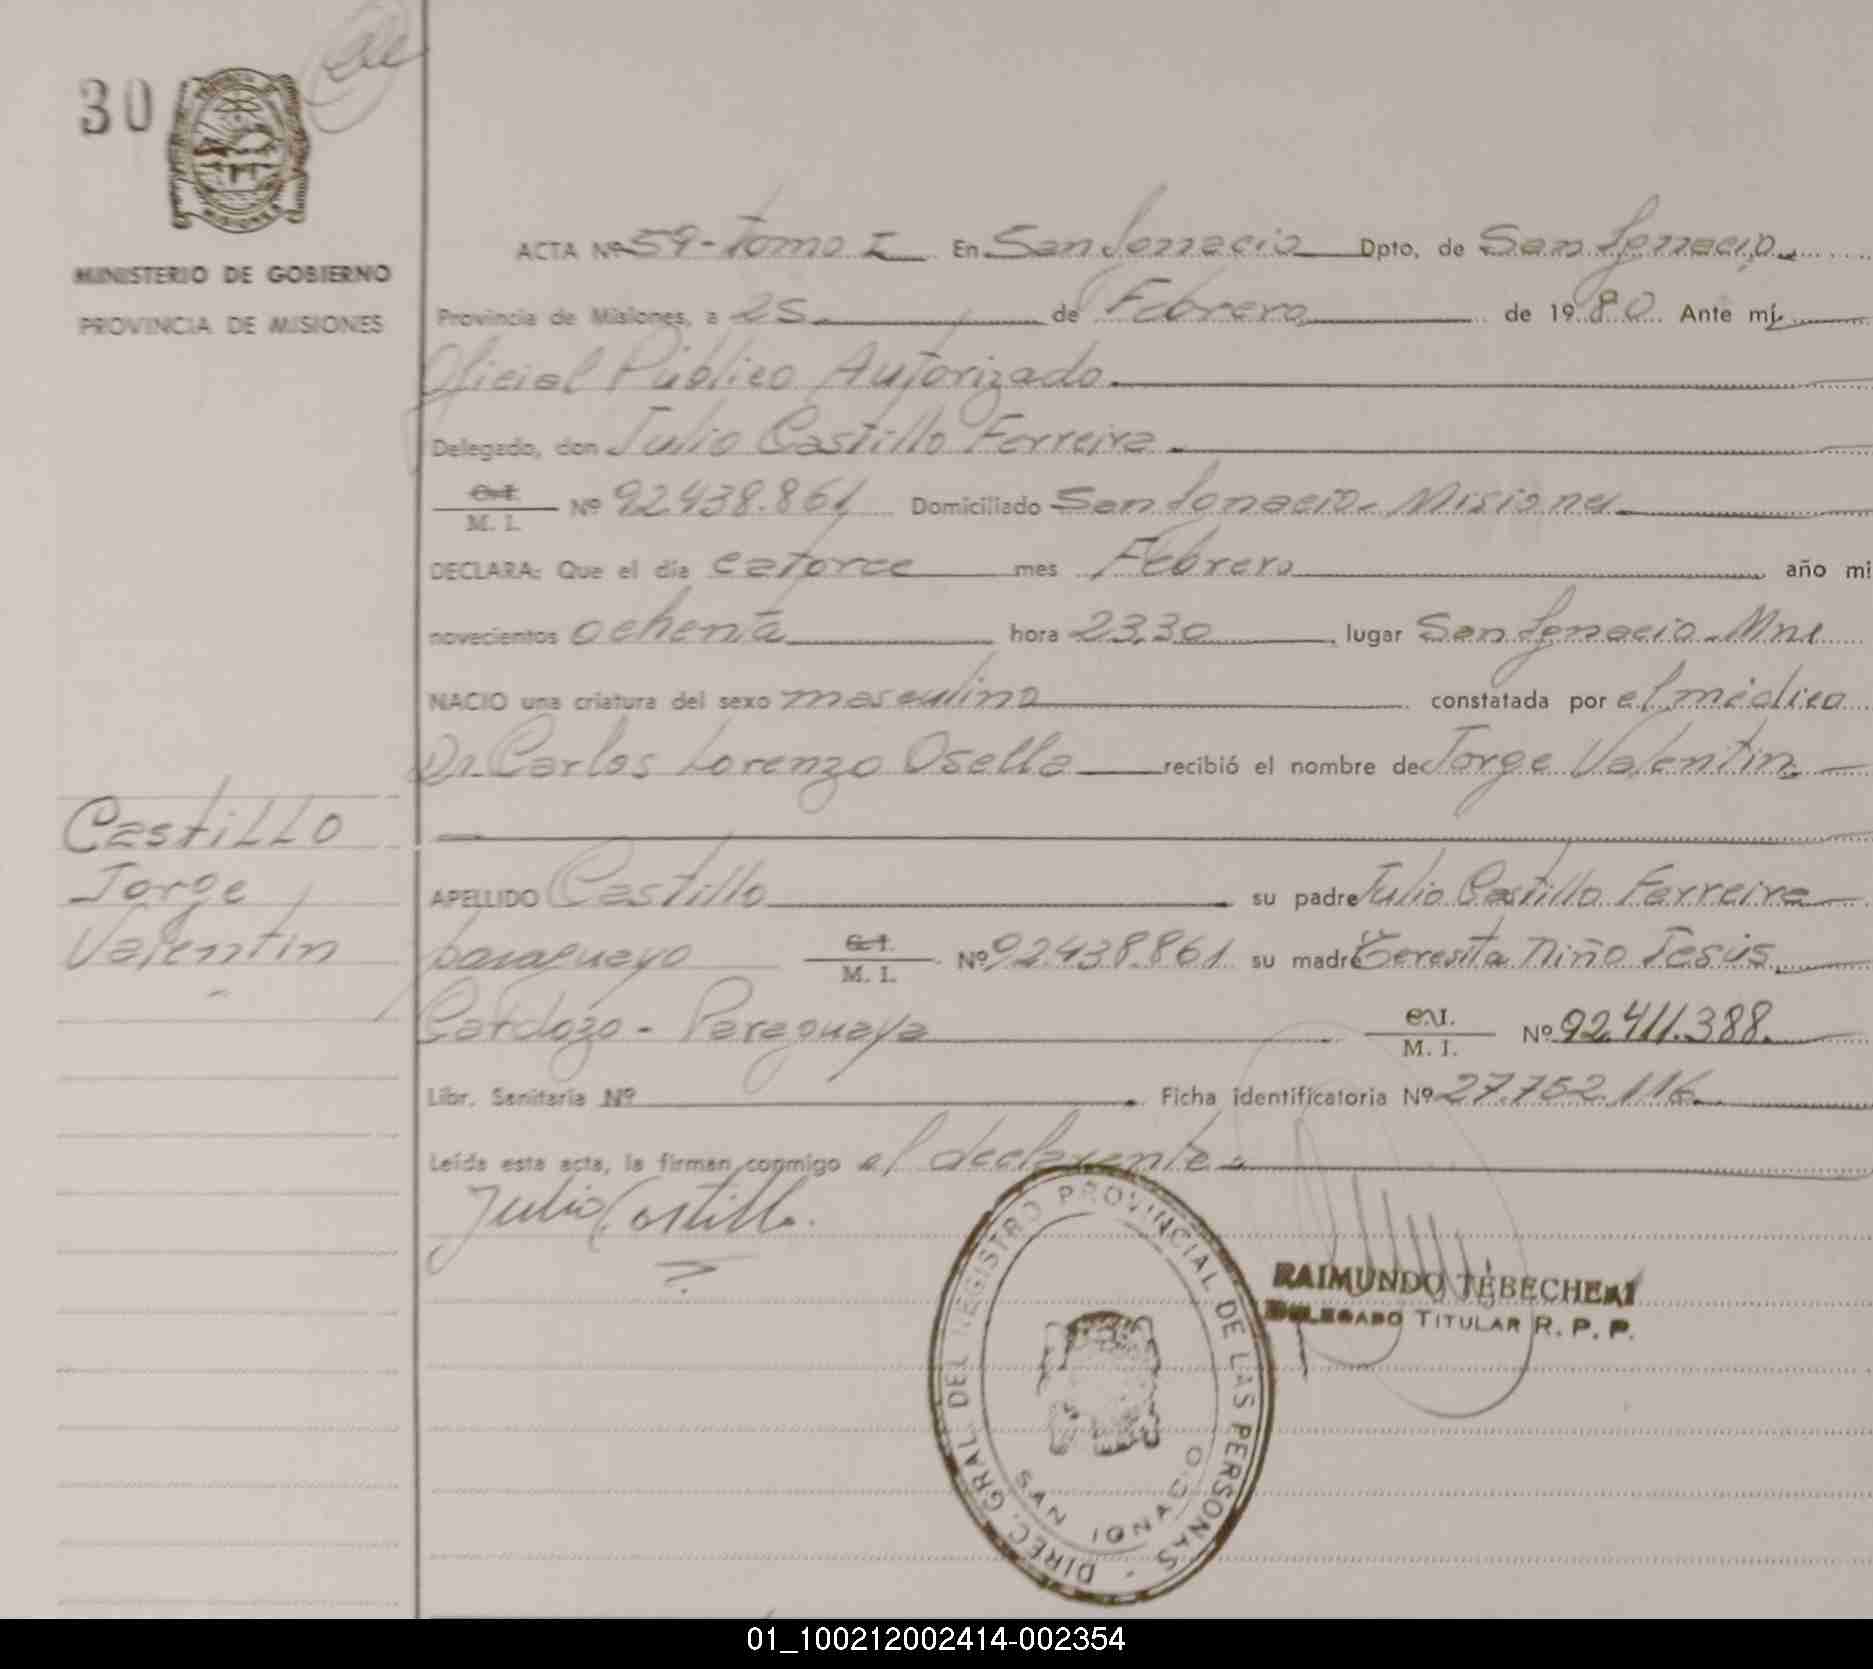 30
MINISTERIO DE GOBIERNO
PROVINCIA DE MISIONES
ACTA Nº 59 - Tomo I En San Ignacio Dpto, de San Ignacio
Provincia de Misiones, a 25 de Febrero de 1980 Ante mí,
Oficial Público Autorizado.
Delegado, don Julio Castillo Ferreira
C. I. / M. I. Nº 92.438.861 Domiciliado San Ignacio - Misiones
DECLARA: Que el día catorce mes Febrero año mi
novecientos ochenta hora 23,30 lugar San Ignacio - Mnes
NACIO una criatura del sexo masculino constatada por el médico
Dr. Carlos Lorenzo Osella recibió el nombre de Jorge Valentin
Castillo
Jorge
Valentin
APELLIDO Castillo su padre Julio Castillo Ferreira
paraguayo C. I. / M. I. Nº 92.438.861 su madre Teresita Niño Jesús
Cardozo - Paraguaya C. I. / M. I. Nº 92.411.388.
Libr. Sanitaria Nº Ficha identificatoria Nº 27.752.116
Leída esta acta, la firman conmigo el declarante.
Julio Castillo.
DIREC. GRAL. DEL REGISTRO PROVINCIAL DE LAS PERSONAS
SAN IGNACIO
RAIMUNDO TEBECHERI
DELEGADO TITULAR R. P. P.
01_100212002414-002354